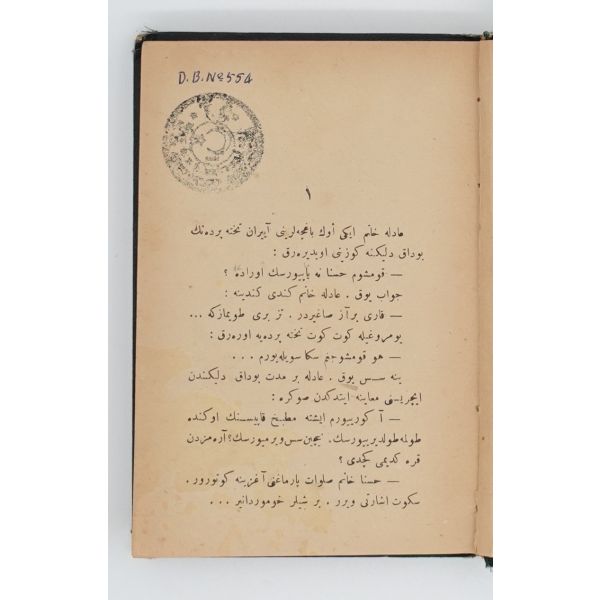 D.B.No 554
١
عادله خانم ایکی أوك باغچه لرینی آییران تخته پرده نك
بوداق دلیكنه كوزینی اویدیره رق :
— قومشوم حسنا نه یاپیورسك اوراده ؟
جواب یوق . عادله خانم كندی كندینه :
— قاری برآز صاغیردر . تز بری طویمازكه ...
یومروغیله كوت كوت تخته پرده یه اوره رق :
— هو قومشوجغم سكا سویله یورم . . .
ینه سس یوق . عادله بر مدت بوداق دلیكندن
ایچریسنی معاینه ایتدكدن صوكره :
— آ كورییورم ایشته مطبخ قاپیسنك اوكنده
طولمه طولدیرییورسك. نیچین سس ویرمیورسك؟ آره مزدن
قره كدیمی كچدی ؟
— حسنا خانم صلوات پارماغنی آغزینه كوتورور .
سكوت اشارتی ویرر . بر شیلر خوموردانیر ...